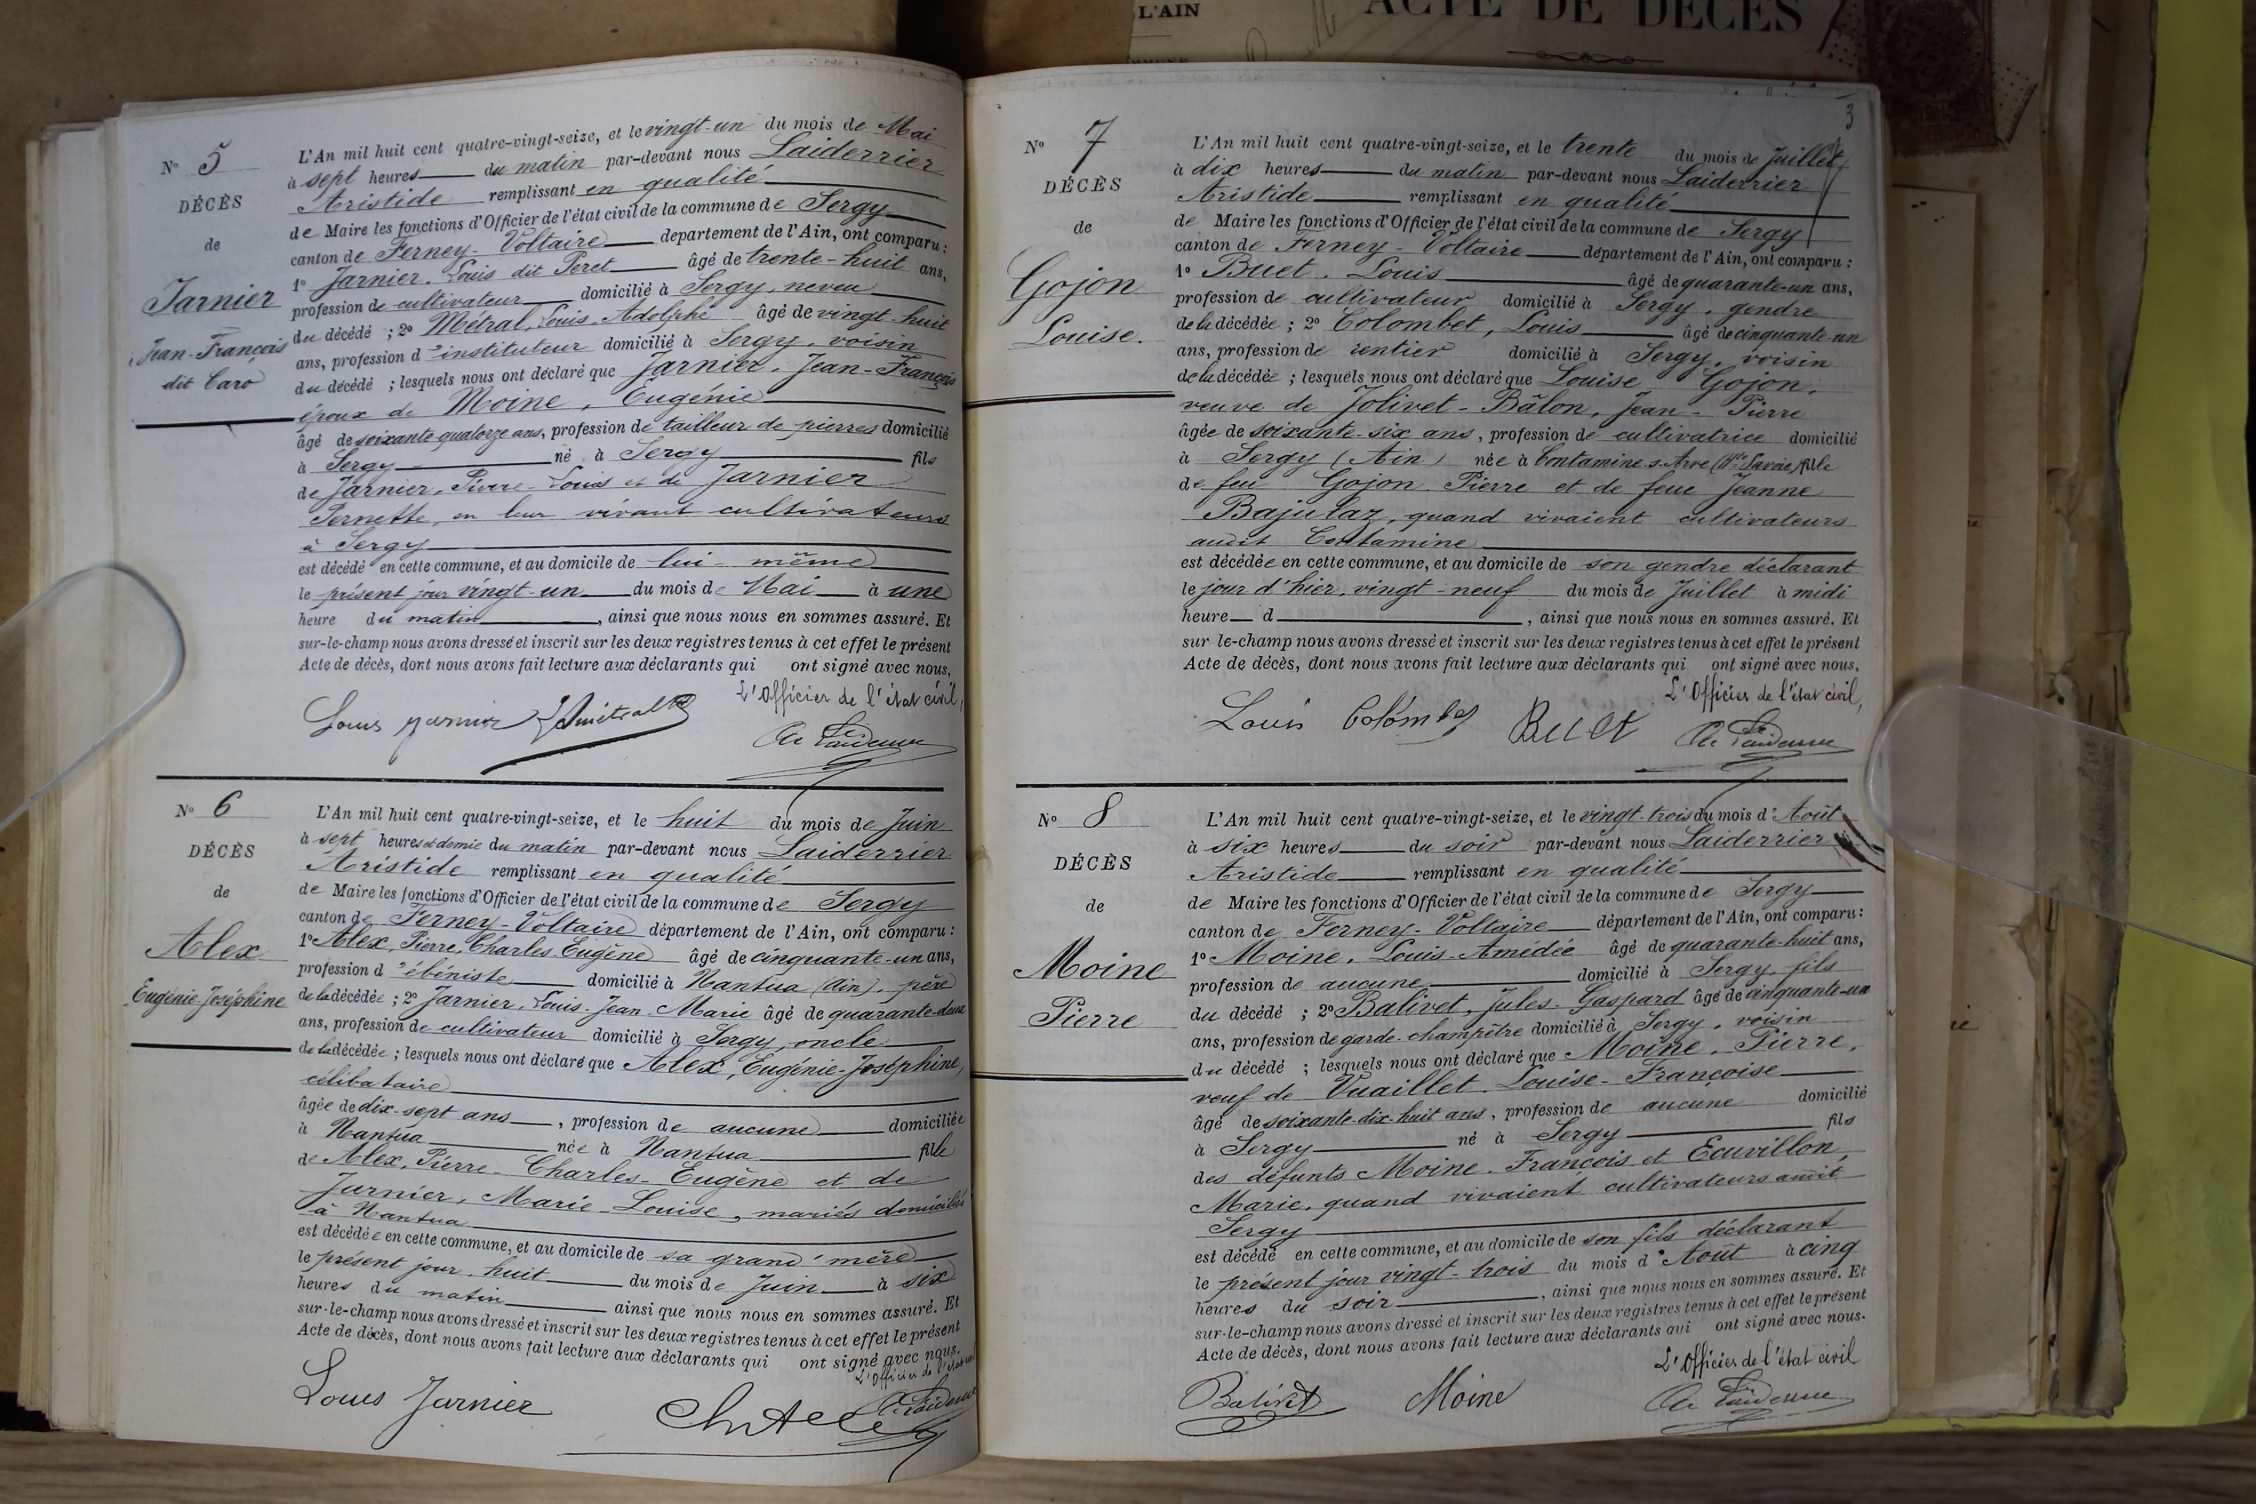 L'AIN
ACTE DE DÉCÈS
N° 5
DÉCÈS
de
Jarnier
Jean-François
dit Caro
L'An mil huit cent quatre-vingt-seize, et le vingt-un du mois de Mai
à sept heures du matin par-devant nous Laiderrier
Aristide remplissant en qualité
de Maire les fonctions d'Officier de l'état civil de la commune de Sergy
canton de Ferney-Voltaire département de l'Ain, ont comparu :
1° Jarnier, Louis dit Peret âgé de trente-huit ans,
profession de cultivateur domicilié à Sergy, neveu
du décédé ; 2° Métral, Louis-Adolphe âgé de vingt-huit
ans, profession d'instituteur domicilié à Sergy, voisin
du décédé ; lesquels nous ont déclaré que Jarnier, Jean-François
époux de Moine, Eugénie
âgé de soixante-quatorze ans, profession de tailleur de pierres domicilié
à Sergy né à Sergy fils
de Jarnier, Pierre-Louis et de Jarnier
Pernette, en leur vivant cultivateurs
à Sergy
est décédé en cette commune, et au domicile de lui-même
le présent jour vingt-un du mois de Mai à une
heure du matin, ainsi que nous nous en sommes assuré. Et
sur-le-champ nous avons dressé et inscrit sur les deux registres tenus à cet effet le présent
Acte de décès, dont nous avons fait lecture aux déclarants qui ont signé avec nous.
L'Officier de l'état civil,
Louis Jarnier
N° 6
DÉCÈS
de
Alex
Eugénie-Joséphine
L'An mil huit cent quatre-vingt-seize, et le huit du mois de Juin
à sept heures et demie du matin par-devant nous Laiderrier
Aristide remplissant en qualité
de Maire les fonctions d'Officier de l'état civil de la commune de Sergy
canton de Ferney-Voltaire département de l'Ain, ont comparu :
1° Alex, Pierre, Charles, Eugène âgé de cinquante-un ans,
profession d'ébéniste domicilié à Nantua (Ain), père
de la décédée ; 2° Jarnier, Louis-Jean-Marie âgé de quarante-deux
ans, profession de cultivateur domicilié à Sergy, oncle
de la décédée ; lesquels nous ont déclaré que Alex, Eugénie-Joséphine,
célibataire
âgée de dix-sept ans, profession de aucune domiciliée
à Nantua née à Nantua fille
de Alex, Pierre-Charles-Eugène et de
Jarnier, Marie-Louise, mariés domiciliés
à Nantua
est décédée en cette commune, et au domicile de sa grand'mère
le présent jour, huit du mois de Juin à six
heures du matin ainsi que nous nous en sommes assuré. Et
sur-le-champ nous avons dressé et inscrit sur les deux registres tenus à cet effet le présent
Acte de décès, dont nous avons fait lecture aux déclarants qui ont signé avec nous.
L'Officier de l'état civil
Louis Jarnier
3
N° 7
DÉCÈS
de
Gojon
Louise.
L'An mil huit cent quatre-vingt-seize, et le trente du mois de Juillet
à dix heures du matin par-devant nous Laiderrier
Aristide remplissant en qualité
de Maire les fonctions d'Officier de l'état civil de la commune de Sergy
canton de Ferney-Voltaire département de l'Ain, ont comparu :
1° Buet, Louis âgé de quarante-un ans,
profession de cultivateur domicilié à Sergy, gendre
de la décédée ; 2° Colombet, Louis âgé de cinquante-un
ans, profession de rentier domicilié à Sergy, voisin
de la décédée ; lesquels nous ont déclaré que Louise Gojon,
veuve de Jolivet-Bâlon, Jean-Pierre
âgée de soixante-six ans, profession de cultivatrice domicilié
à Sergy (Ain) née à Contamine s. Arve (Hte Savoie) fille
de feu Gojon Pierre et de feue Jeanne
Bajulaz, quand vivaient cultivateurs
audit Contamine
est décédée en cette commune, et au domicile de son gendre déclarant
le jour d'hier, vingt-neuf du mois de Juillet à midi
heure d , ainsi que nous nous en sommes assuré. Et
sur-le-champ nous avons dressé et inscrit sur les deux registres tenus à cet effet le présent
Acte de décès, dont nous avons fait lecture aux déclarants qui ont signé avec nous.
L'Officier de l'état civil,
Louis Colombet Buet
N° 8
DÉCÈS
de
Moine
Pierre
L'An mil huit cent quatre-vingt-seize, et le vingt-trois du mois d'Août
à six heures du soir par-devant nous Laiderrier
Aristide remplissant en qualité
de Maire les fonctions d'Officier de l'état civil de la commune de Sergy
canton de Ferney-Voltaire département de l'Ain, ont comparu :
1° Moine, Louis-Amédée âgé de quarante-huit ans,
profession de aucune domicilié à Sergy, fils
du décédé ; 2° Balivet, Jules-Gaspard âgé de cinquante-un
ans, profession de garde-champêtre domicilié à Sergy, voisin
du décédé ; lesquels nous ont déclaré que Moine, Pierre,
veuf de Vuaillet Louise-Françoise
âgé de soixante-dix-huit ans, profession de aucune domicilié
à Sergy né à Sergy fils
des défunts Moine, François et Ecuvillon,
Marie, quand vivaient cultivateurs audit
Sergy
est décédé en cette commune, et au domicile de son fils déclarant
le présent jour vingt-trois du mois d'Août à cinq
heures du soir, ainsi que nous nous en sommes assuré. Et
sur-le-champ nous avons dressé et inscrit sur les deux registres tenus à cet effet le présent
Acte de décès, dont nous avons fait lecture aux déclarants qui ont signé avec nous.
L'Officier de l'état civil
Balivet Moine